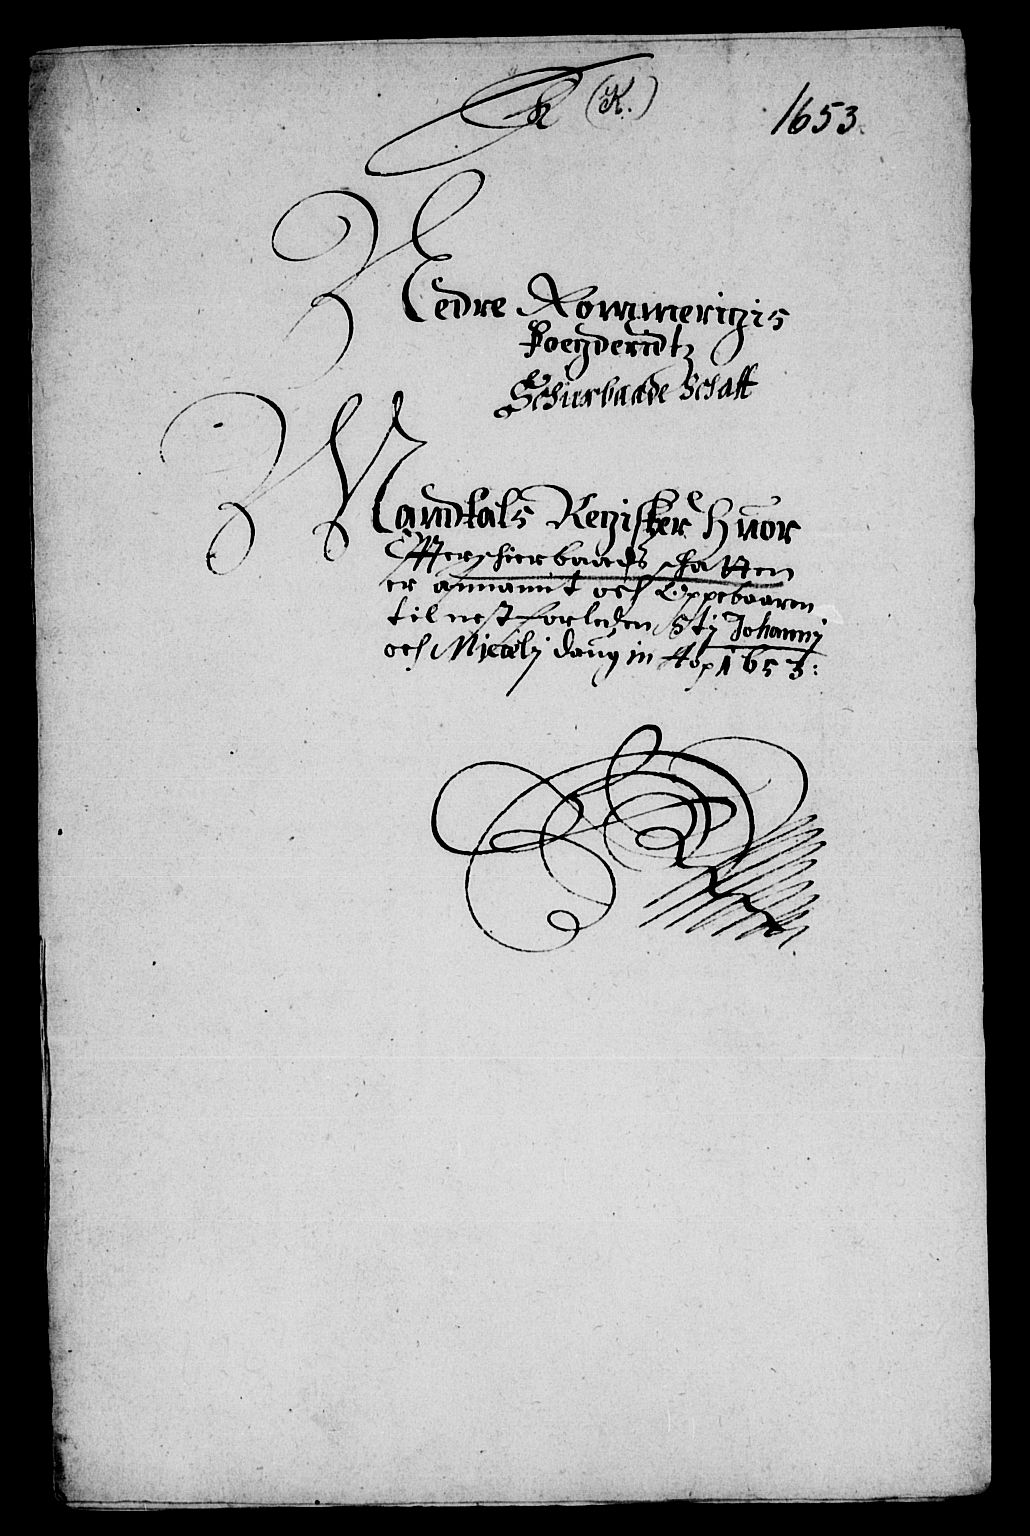 K (K.) 1653.
Nedre Rommerigis
Foegderidtz
Schierbaade Schatt
Mandtals Register Hvor
Effter schierbaads schatten
er annammit och Oppebaaren
til nest forleden Stj Johannj
och Mickelj daug in Ao 1653: